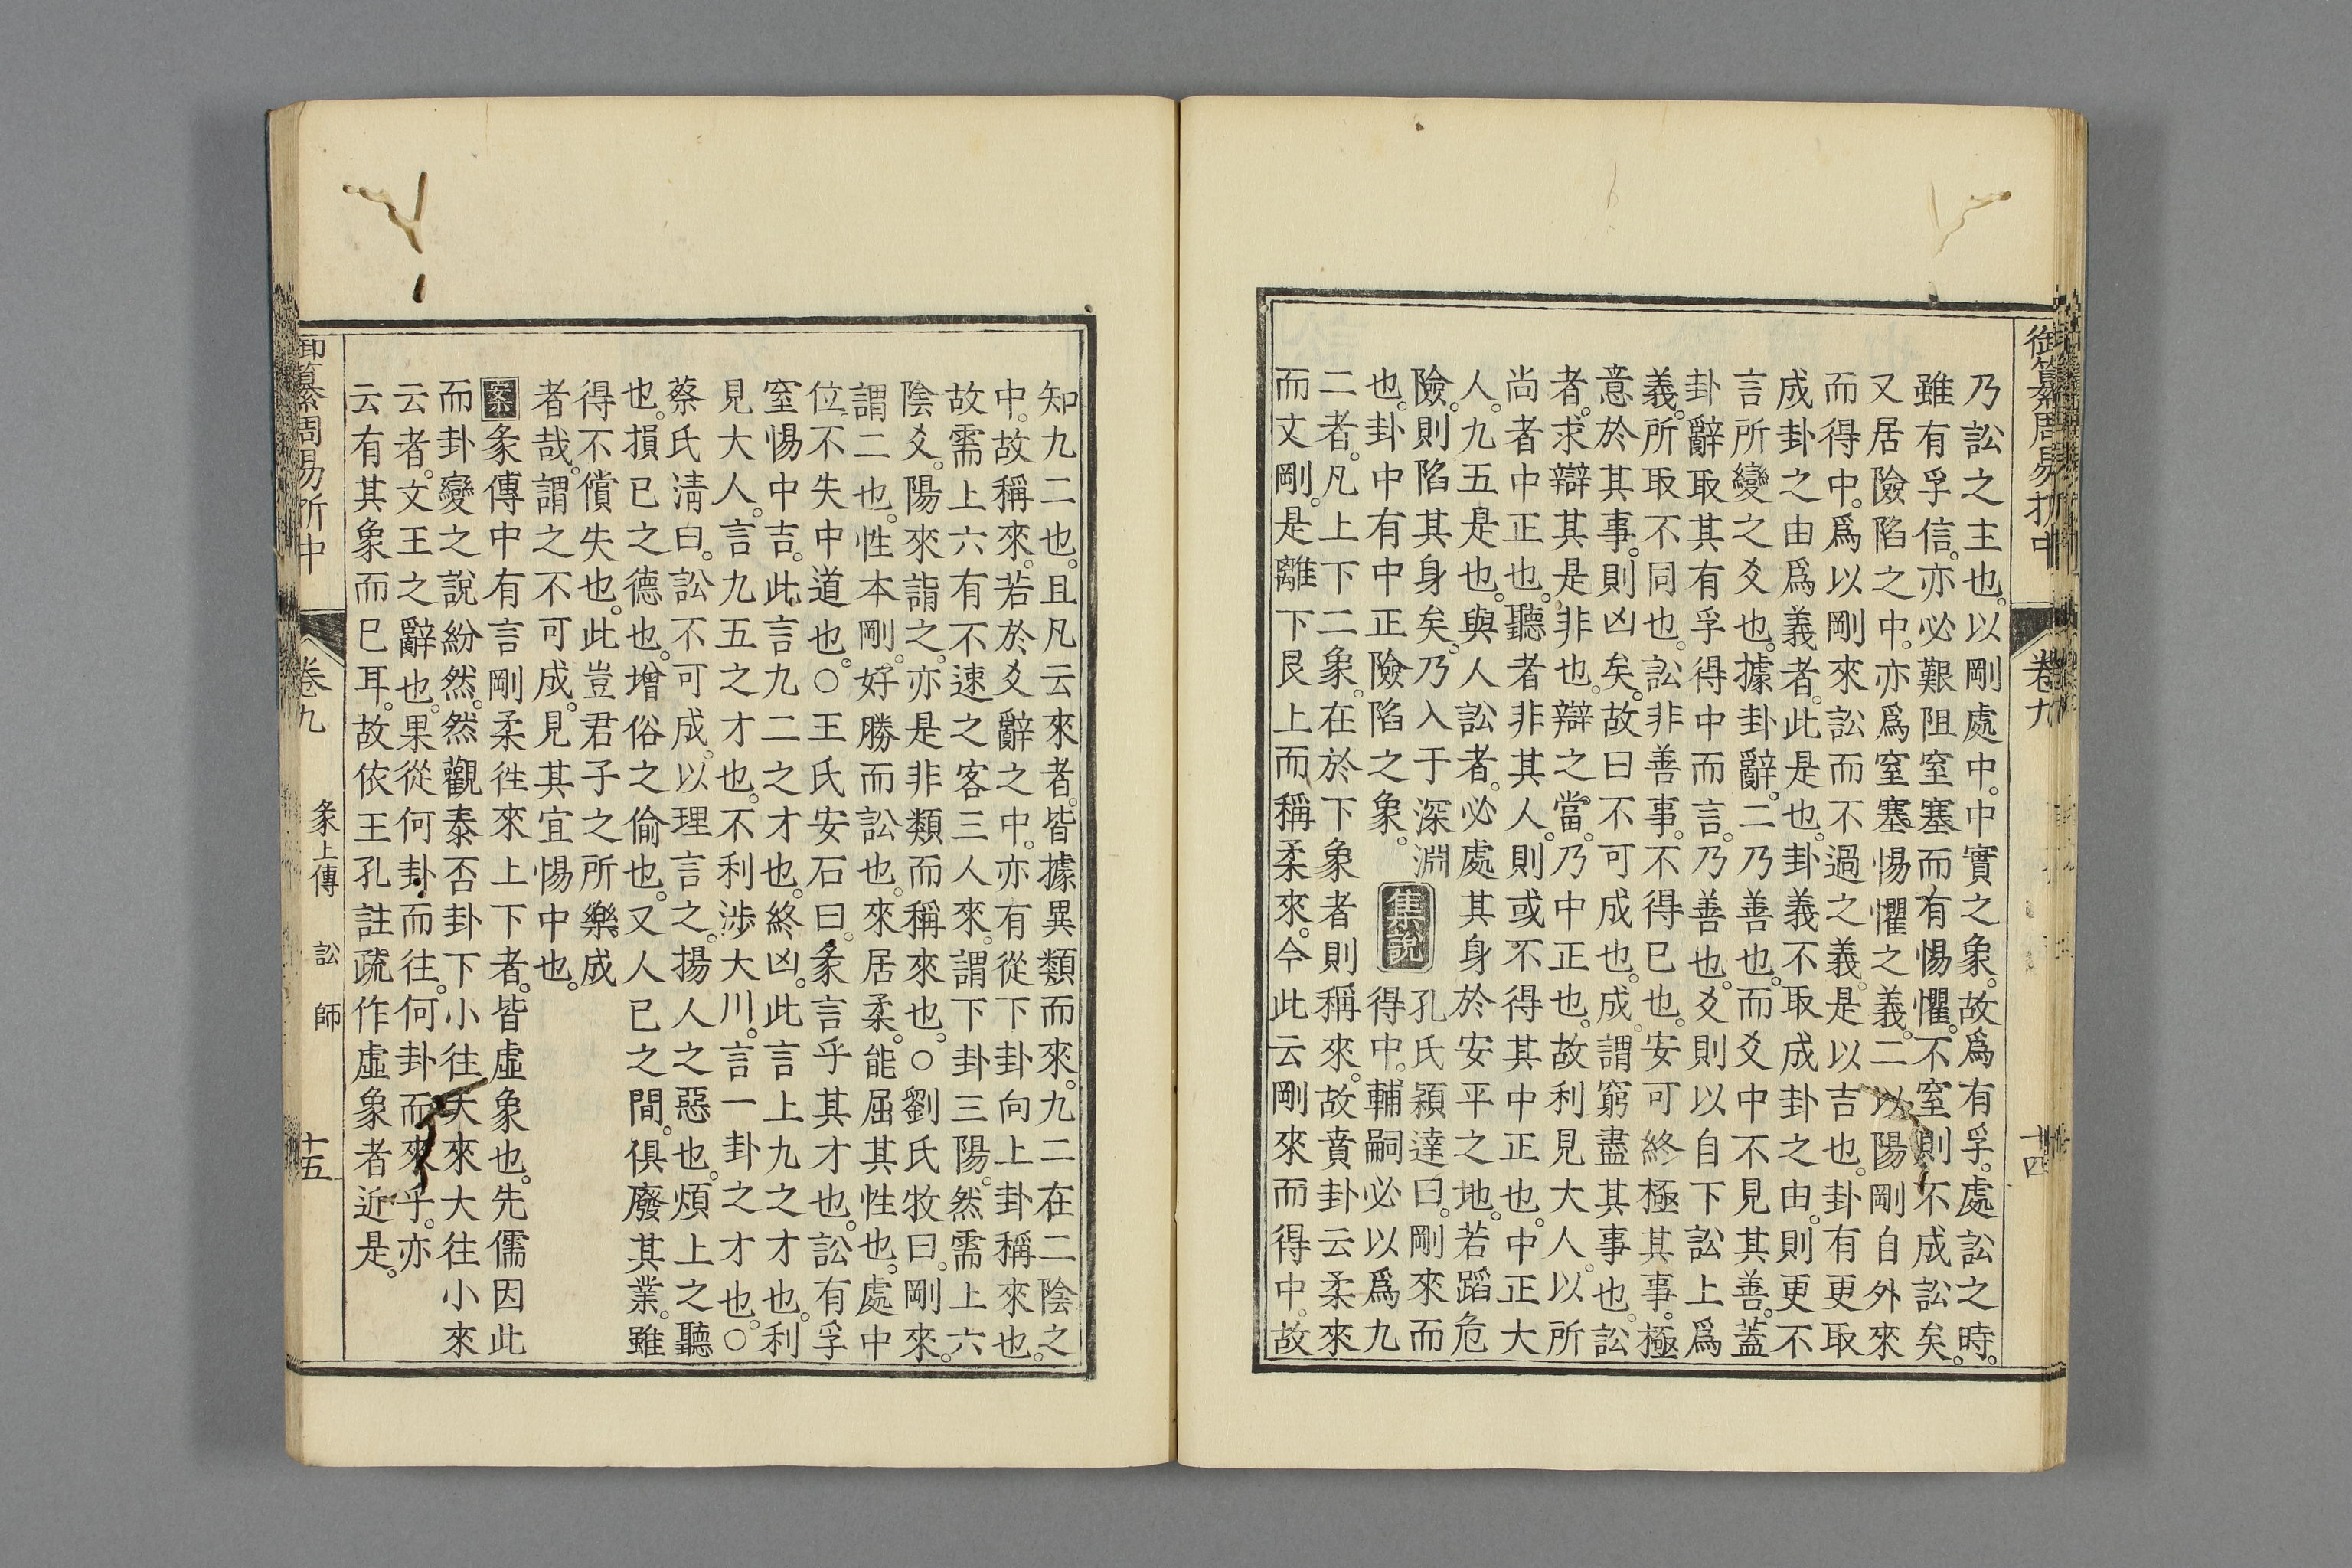 御纂周易折中
卷九
十四
乃訟之主也。以剛處中。中實之象。故爲有孚。處訟之時。
雖有孚信。亦必艱阻窒塞而有惕懼。不窒則不成訟矣。
又居險陷之中。亦爲窒塞惕懼之義。二以陽剛自外來
而得中。爲以剛來訟而不過之義。是以吉也。卦有更取
成卦之由爲義者。此是也。卦義不取成卦之由。則更不
言所變之爻也。據卦辭。二乃善也。而爻中不見其善。蓋
卦辭取其有孚得中而言。乃善也。爻則以自下訟上爲
義。所取不同也。訟非善事。不得已也。安可終極其事。極
意於其事。則凶矣。故曰不可成也。成謂窮盡其事也。訟
者。求辯其是非也。辯之當。乃中正也。故利見大人。以所
尚者中正也。聽者非其人。則或不得其中正也。中正大
人。九五是也。與人訟者。必處其身於安平之地。若蹈危
險。則陷其身矣。乃入于深淵 集說 孔氏穎達曰。剛來而
也。卦中有中正險陷之象。 得中。輔嗣必以爲九
二者。凡上下二象。在於下象者則稱來。故賁卦云柔來
而文剛。是離下艮上而稱柔來。今此云剛來而得中。故
知九二也。且凡云來者。皆據異類而來。九二在二陰之
中。故稱來。若於爻辭之中。亦有從下卦向上卦稱來也。
故需上六有不速之客三人來。謂下卦三陽。然需上六
陰爻。陽來詣之。亦是非類而稱來也。○劉氏牧曰。剛來。
謂二也。性本剛。好勝而訟也。來居柔。能屈其性也。處中
位。不失中道也。○王氏安石曰。彖言乎其才也。訟有孚
窒惕中吉。此言九二之才也。終凶。此言上九之才也。利
見大人。言九五之才也。不利涉大川。言一卦之才也。○
蔡氏淸曰。訟不可成。以理言之。揚人之惡也。煩上之聽
也。損已之德也。增俗之偷也。又人已之間。俱廢其業。雖
得不償失也。此豈君子之所樂成
者哉。謂之不可成。見其宜惕中也。
案 彖傳中有言剛柔徃來上下者。皆虛象也。先儒因此
而卦變之說紛然。然觀泰否卦下小往大來大往小來
云者。文王之辭也。果從何卦而往。何卦而來乎。亦
云有其象而巳耳。故依王孔註疏作虛象者近是。
御纂周易折中
卷九
彖上傳 訟 師
十五